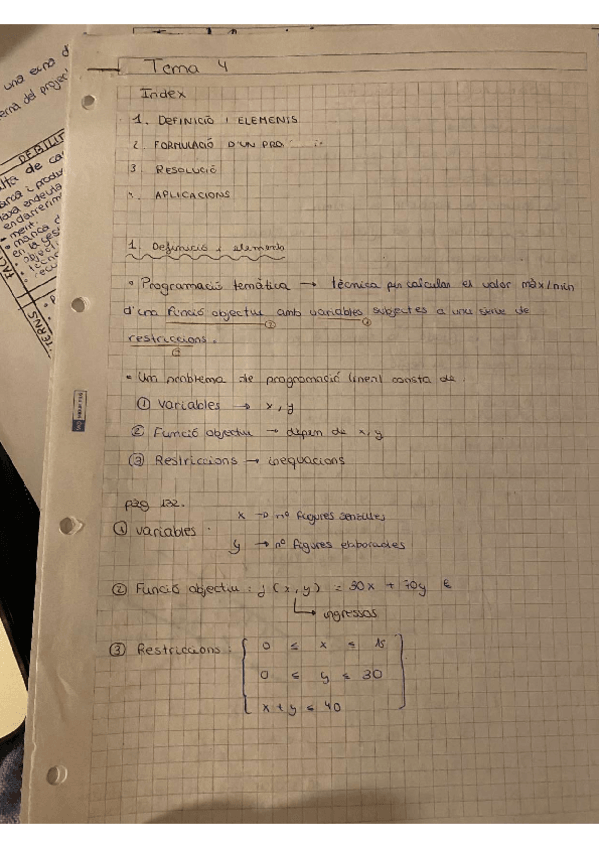 Tema 4
Index
1. DEFINICIÓ I ELEMENTS
2. FORMULACIÓ D'UN PRO
3. RESOLUCIÓ
4. APLICACIONS
1. Definició i elements
• Programació temàtica → tècnica per calcular el valor màx/min
d'una funció objectiu amb variables subjectes a una serie de
①
②
restriccions.
③
• Um problema de programació lineal consta de:
① Variables → x, y
② Funció objectiu → depèn de x, y
③ Restriccions → inequacions
pàg 132.
① variables:
x → nº figures senzilles
y → nº figures elaborades
② Funció objectiu: f(x, y) = 50x + 70y €
↳ ingressos
③ Restriccions:
0 ≤ x ≤ 15
0 ≤ y ≤ 30
x + y ≤ 40
una
erna del projec
DEBILIT
alta de ca
marca i produ
endarrerim
ment.
manca d
en la ges
object
tècn
ecc
TERNS